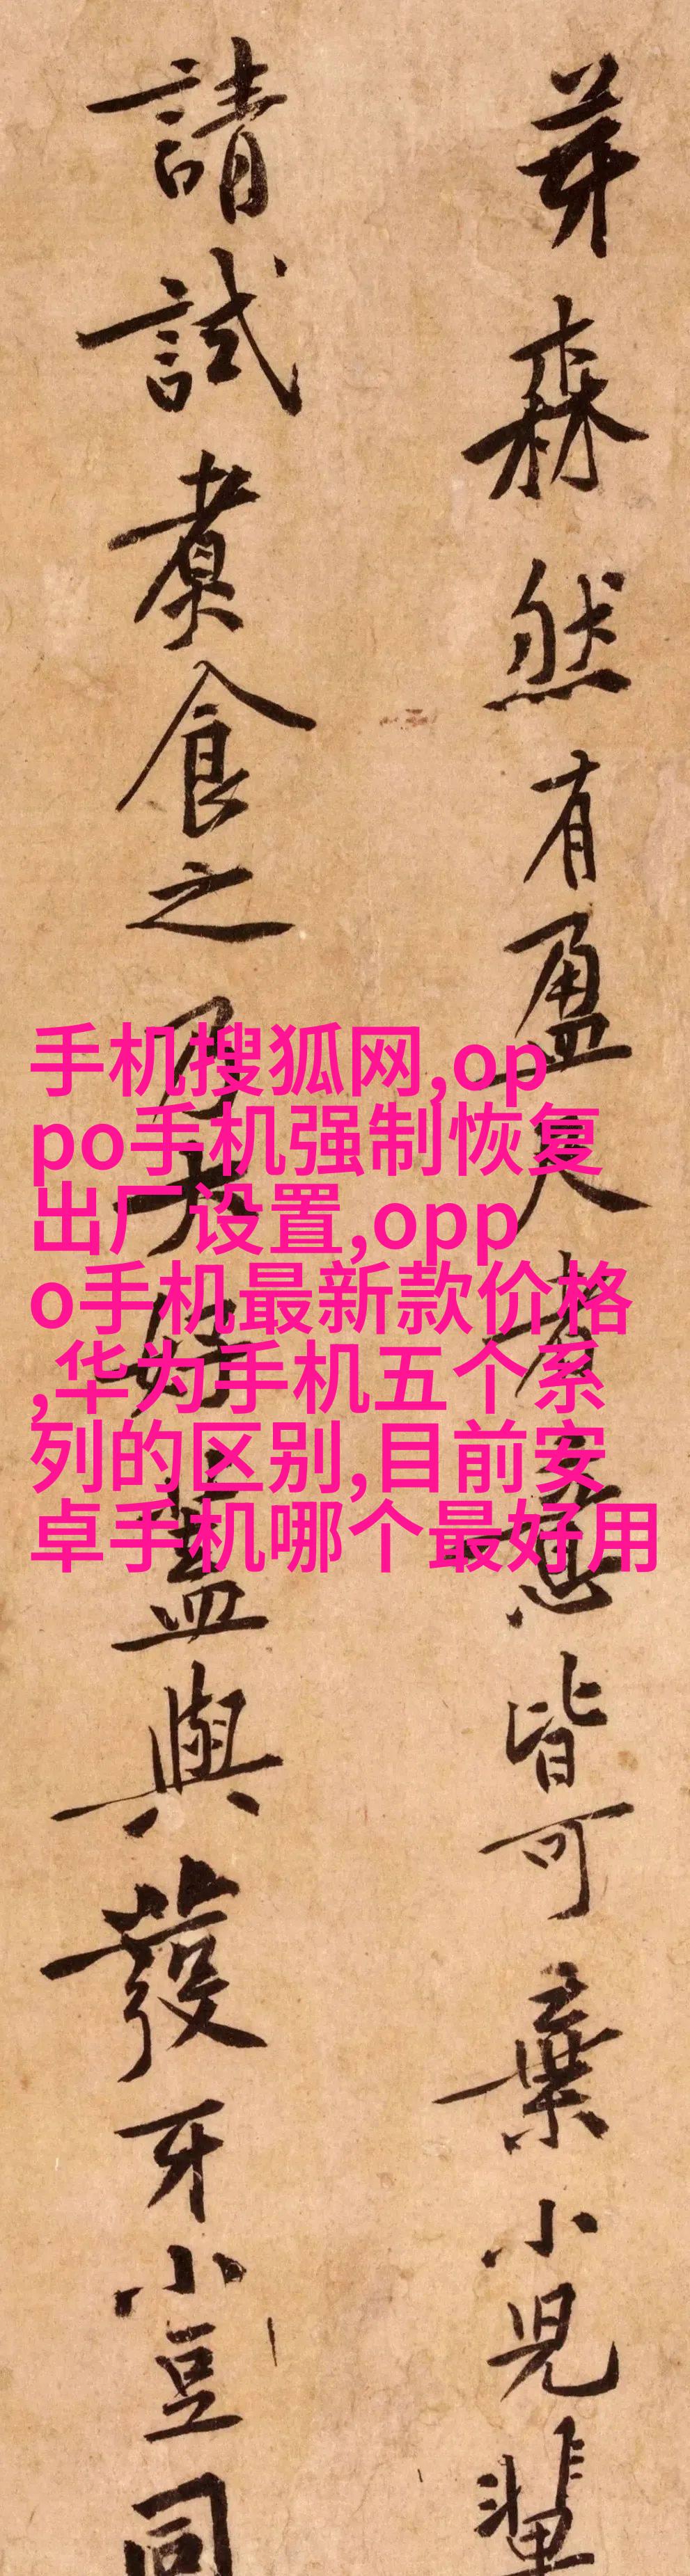 芽森然有盈尺者意皆可棄小兒輩
請試煮食之乃大好蓋與發牙小豆同
手机搜狐网,op
po手机强制恢复
出厂设置,opp
o手机最新款价格
,华为手机五个系
列的区别,目前安
卓手机哪个最好用